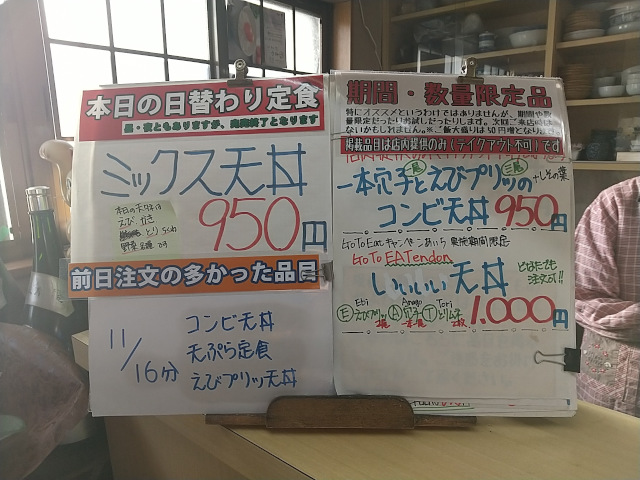 本日の日替わり定食
昼・夜ともありますが、完売終了となります
ミックス天丼
本日の天ぷらは
えび、かき
とり
950円
前日注文の多かった品目
11/16分
コンビ天丼
天ぷら定食
えびプリッツ天丼
期間・数量限定品
特にオススメというわけではありませんが、期間や数
量限定だったりお試しだったりします。次回ご来店時は
ないかもしれません。※ご飯大盛りは50円増となります
掲載品目は店内提供のみ(テイクアウト不可)です
一本穴子とえびプリッの
+しその葉
コンビ天丼 950円
GoToEatキャンペーンあいち 実施期間限定
GoTo EATendon
いいいい天丼
どなたでも
注文可!!
Ebi Anago Tori
E えびプリッ A 穴子 T とりムネ
1,000円